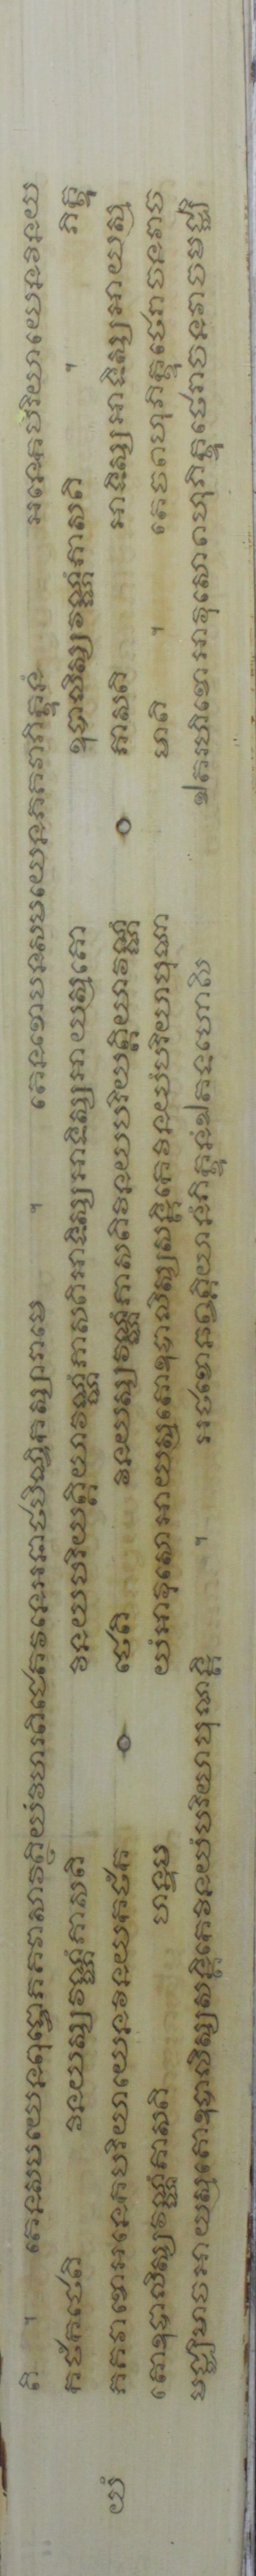 តិ ។ តេនសមយេនពុទ្ធោភគវាសាវត្ថិយំវិហរតិជេតវនេអនាថបិណ្ឌិកស្សារាមេ ។ តេនខោបនសមយេនភគវាភិក្ខូនំ អនេកបរិយាយេនវិនយ
កថំកថេតិ វិនយស្សវណ្ណំភាសតិ វិនយបរិយត្តិយាវណ្ណំភាសតិអាទិស្សអាទិស្សអាយស្មតោ ឧបាលិស្សវណ្ណំភាសតិ ។ ភិក្ខូ
យំ ភគវាខោអនេកបរិយាយេនវិនយកថំក ថេតិ វិនយស្សវណ្ណំភាសតិវិនយបរិយត្តិយាវណ្ណំ ភាសតិ អាទិស្សអាទិស្សអាយស្ម
តោឧបាលិស្សវណ្ណំភាសតិ ហន្ទម យំអាវុសោអាយស្មតោឧបាលិស្សសន្តិកេវិនយំបរិយាបុណា មាតិ ។ តេចពហូភិក្ខូថេរាចនវាច
មជ្ឈិមាចអាយស្មតោឧបាលិស្សសន្តិកេវិនយំបរិយាបុណន្តិ ។ អថខោឆព្វគ្គិយានំភិក្ខូនំឯតទហោសិ ឯតរហិខោអាវុសោពហូភិក្ខូថេរាចនវាចមជ្ឈិ